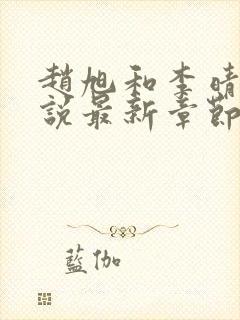 趙旭和李晴
說最新章節
藍伽